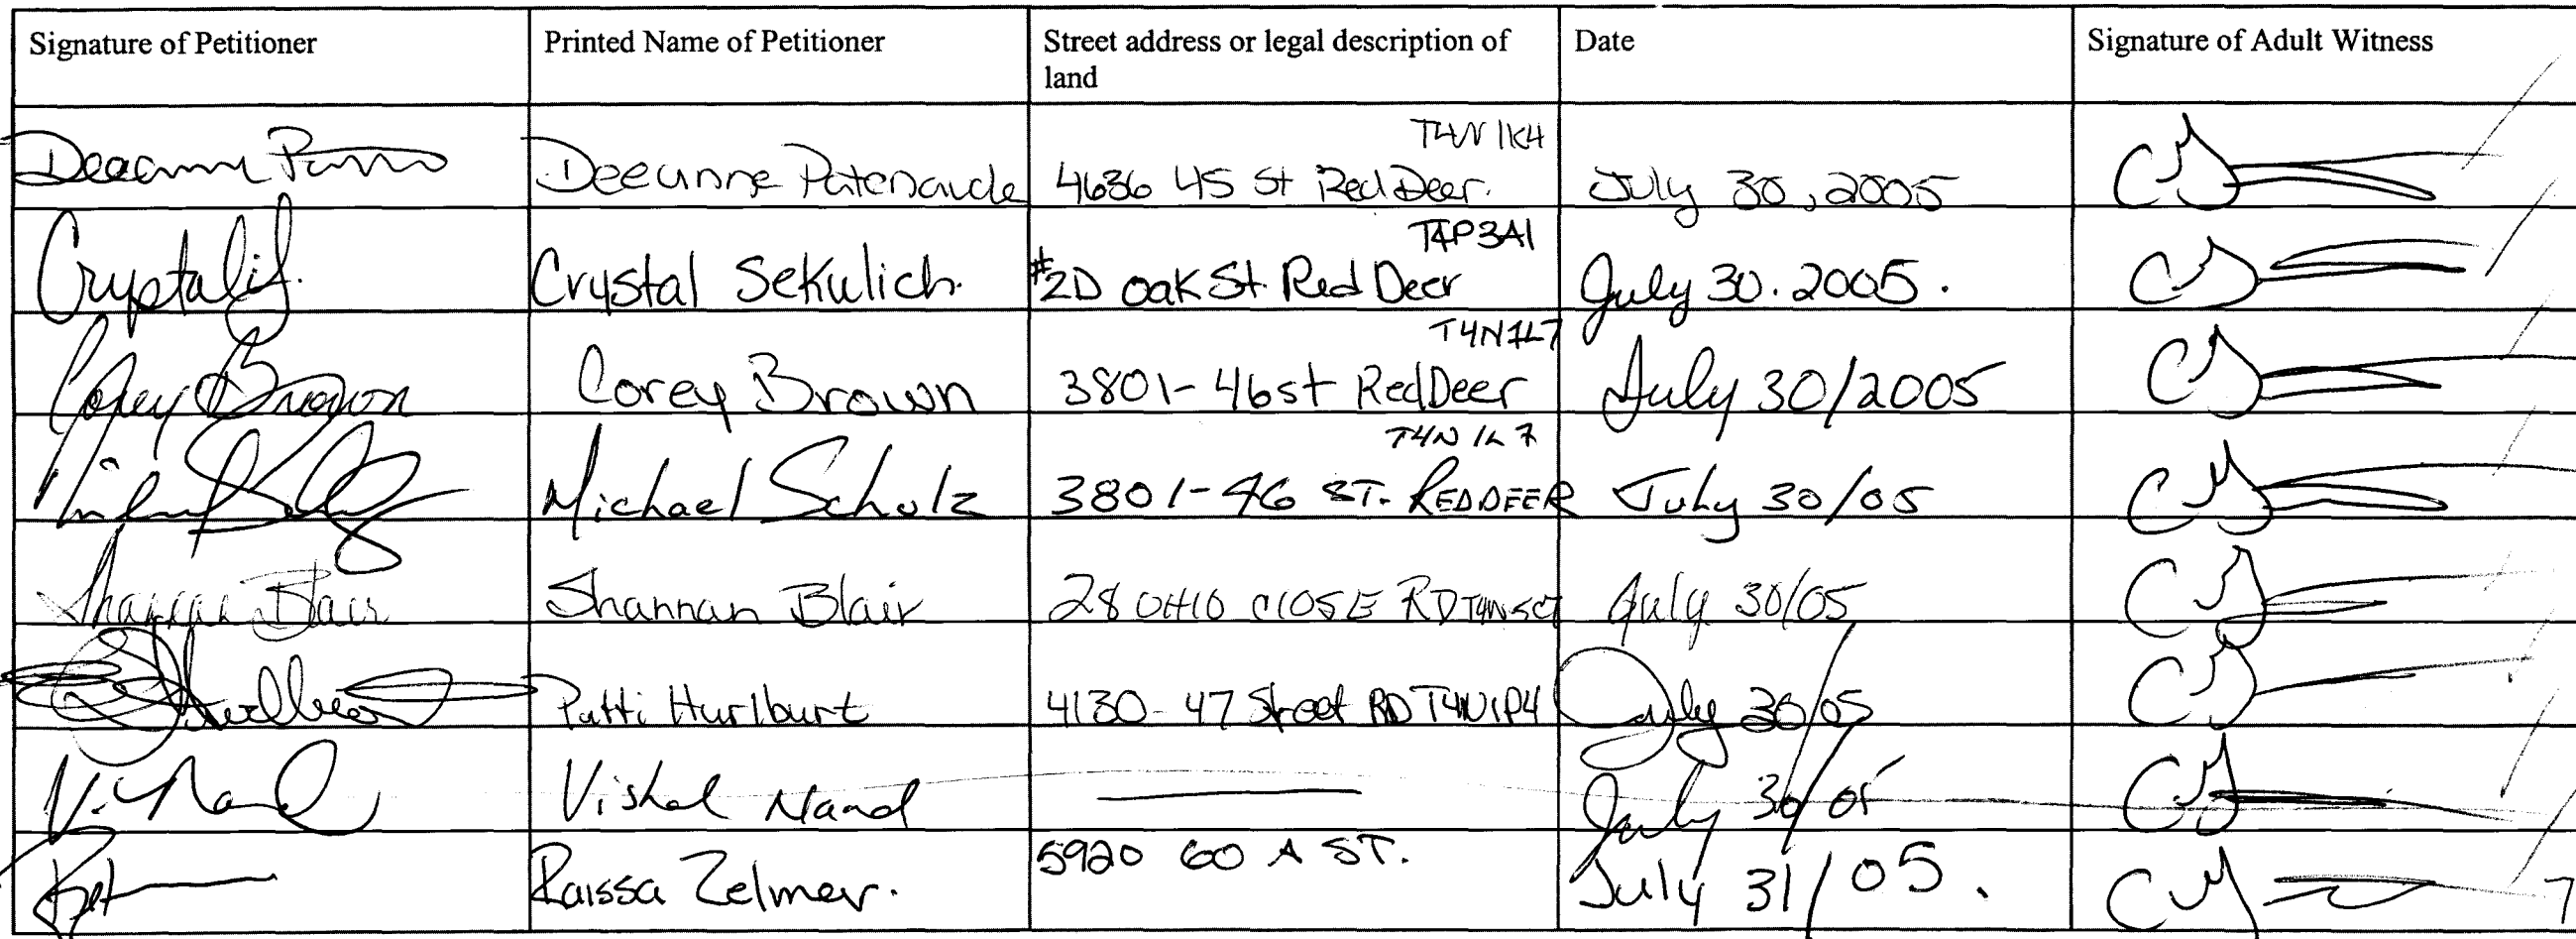 Signature of Petitioner Printed Name of Petitioner Street address or legal description of land Date Signature of Adult Witness
T4N 1K4
Deeanne Patenaude 4636 45 St Red Deer. July 30, 2005
T4P3A1
Crystal Sekulich. #2D Oak St. Red Deer July 30. 2005.
T4N1L7
Corey Brown Corey Brown 3801-46st Red Deer July 30/2005
T4N 1L7
Michael Schulz 3801-46 ST. RED DEER July 30/05
Shannan Blair Shannan Blair 28 OHIO ClOSE RD July 30/05
Patti Hurlburt 4130-47 Street RD T4N1P4 July 30/05
V. Nand Vishal Nand July 30/05
Raissa Zelmer. 5920 60 A ST. July 31/05.
7